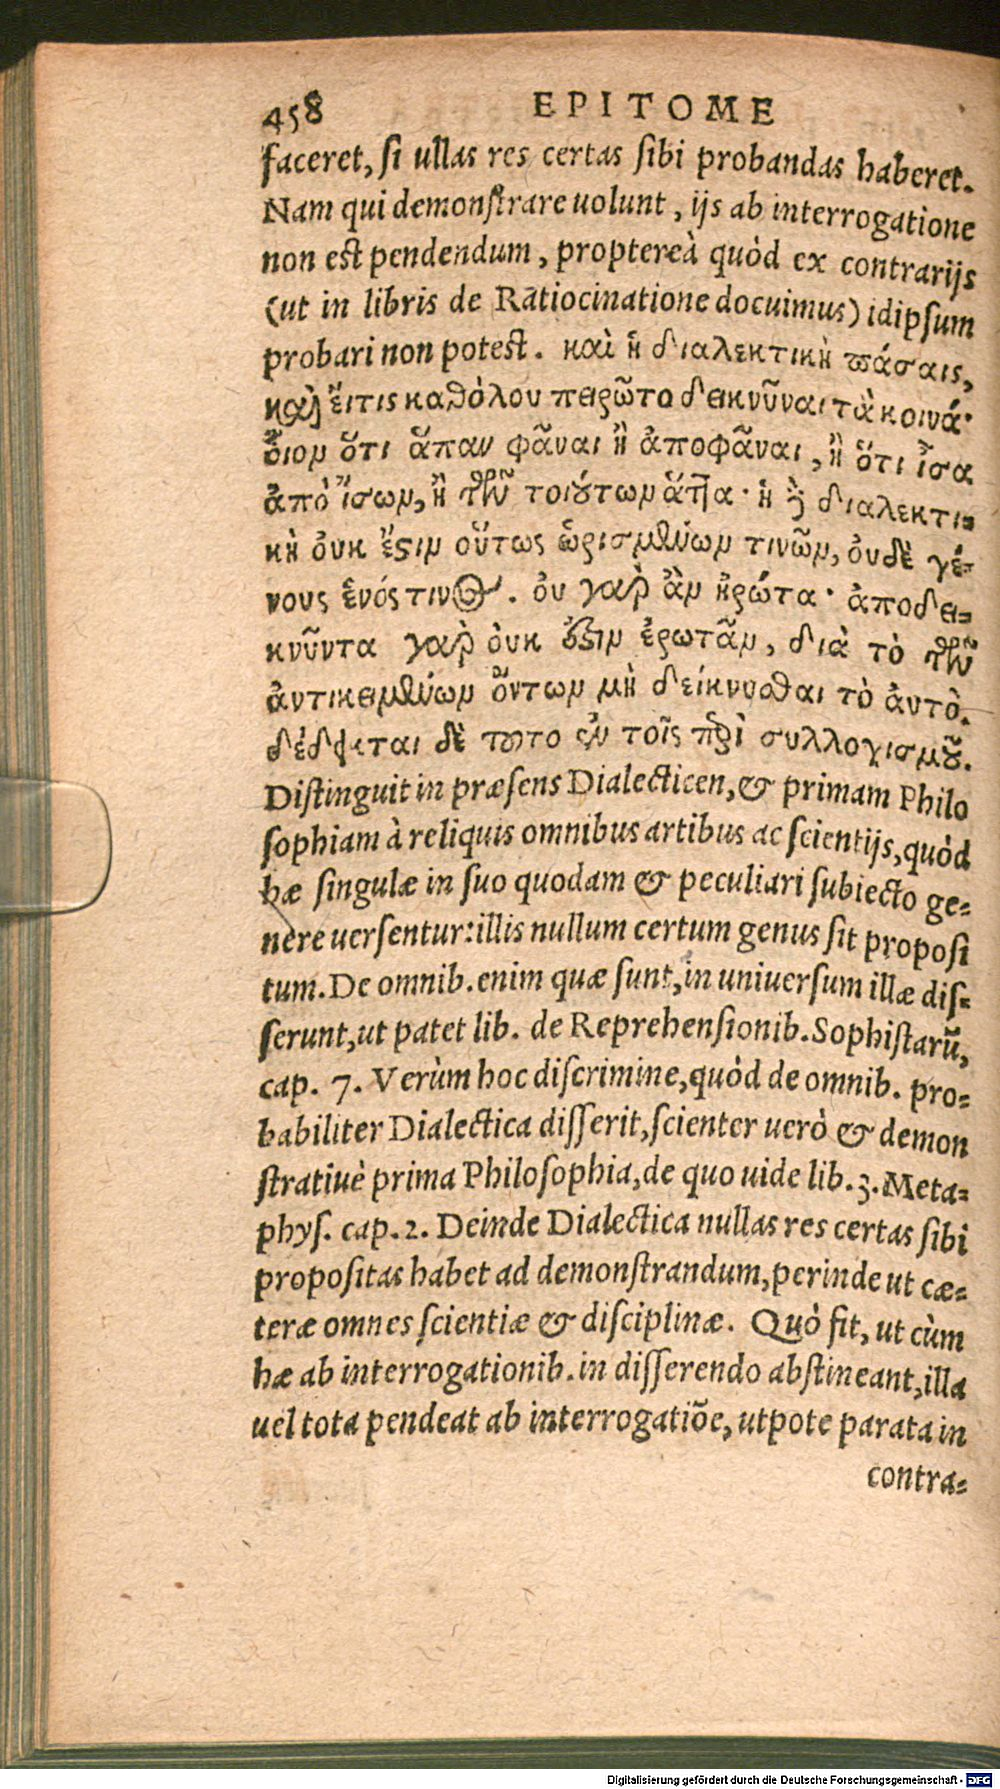 458 EPITOME
faceret, ſi ullas res certas ſibi probandas haberet.
Nam qui demonſtrare uolunt, ijs ab interrogatione
non eſt pendendum, proptereà quòd ex contrarijs
(ut in libris de Ratiocinatione docuimus) idipſum
probari non potest. καὶ ἡ διαλεκτικὴ πάσαις,
καὶ εἴτις καθόλου πειρῷτο δεικνῦναι τὰ κοινά·
οἷον ὅτι ἅπαν φᾶναι ἢ ἀποφᾶναι, ἢ ὅτι ἶσα
ἀπὸ ἴσων, ἢ τῶν τοιούτων ἅττα· ἡ δὲ διαλεκτι-
κὴ ὀυκ ἔστιν οὕτως ὡρισμένων τινῶν, ὀυδὲ γέ-
νους ἑνός τινος. ὀυ γὰρ ἂν ἠρώτα· ἀποδει-
κνῦντα γὰρ ὀυκ ἔστιν ἐρωτᾶν, διὰ τὸ τῶν
ἀντικειμένων ὄντων μὴ δείκνυσθαι τὸ ἀυτό.
δέδεικται δὲ τοῦτο ἐν τοῖς περὶ συλλογισμοῦ.
Diſtinguit in præſens Dialecticen, & primam Philo
ſophiam à reliquis omnibus artibus ac ſcientijs, quòd
hæ ſingulæ in ſuo quodam & peculiari ſubiecto ge-
nere uerſentur: illis nullum certum genus ſit propoſi
tum. De omnib. enim quæ ſunt, in uniuerſum illæ diſ-
ſerunt, ut patet lib. de Reprehenſionib. Sophiſtarū,
cap. 7. Verùm hoc diſcrimine, quòd de omnib. pro-
babiliter Dialectica diſſerit, ſcienter uerò & demon
ſtratiuè prima Philoſophia, de quo uide lib. 3. Meta-
phyſ. cap. 2. Deinde Dialectica nullas res certas ſibi
propoſitas habet ad demonſtrandum, perinde ut cæ-
teræ omnes ſcientiæ & diſciplinæ. Quò fit, ut cùm
hæ ab interrogationib. in diſſerendo abſtineant, illa
uel tota pendeat ab interrogatiōe, utpote parata in
contra-
Digitalisierung gefördert durch die Deutsche Forschungsgemeinschaft - DFG